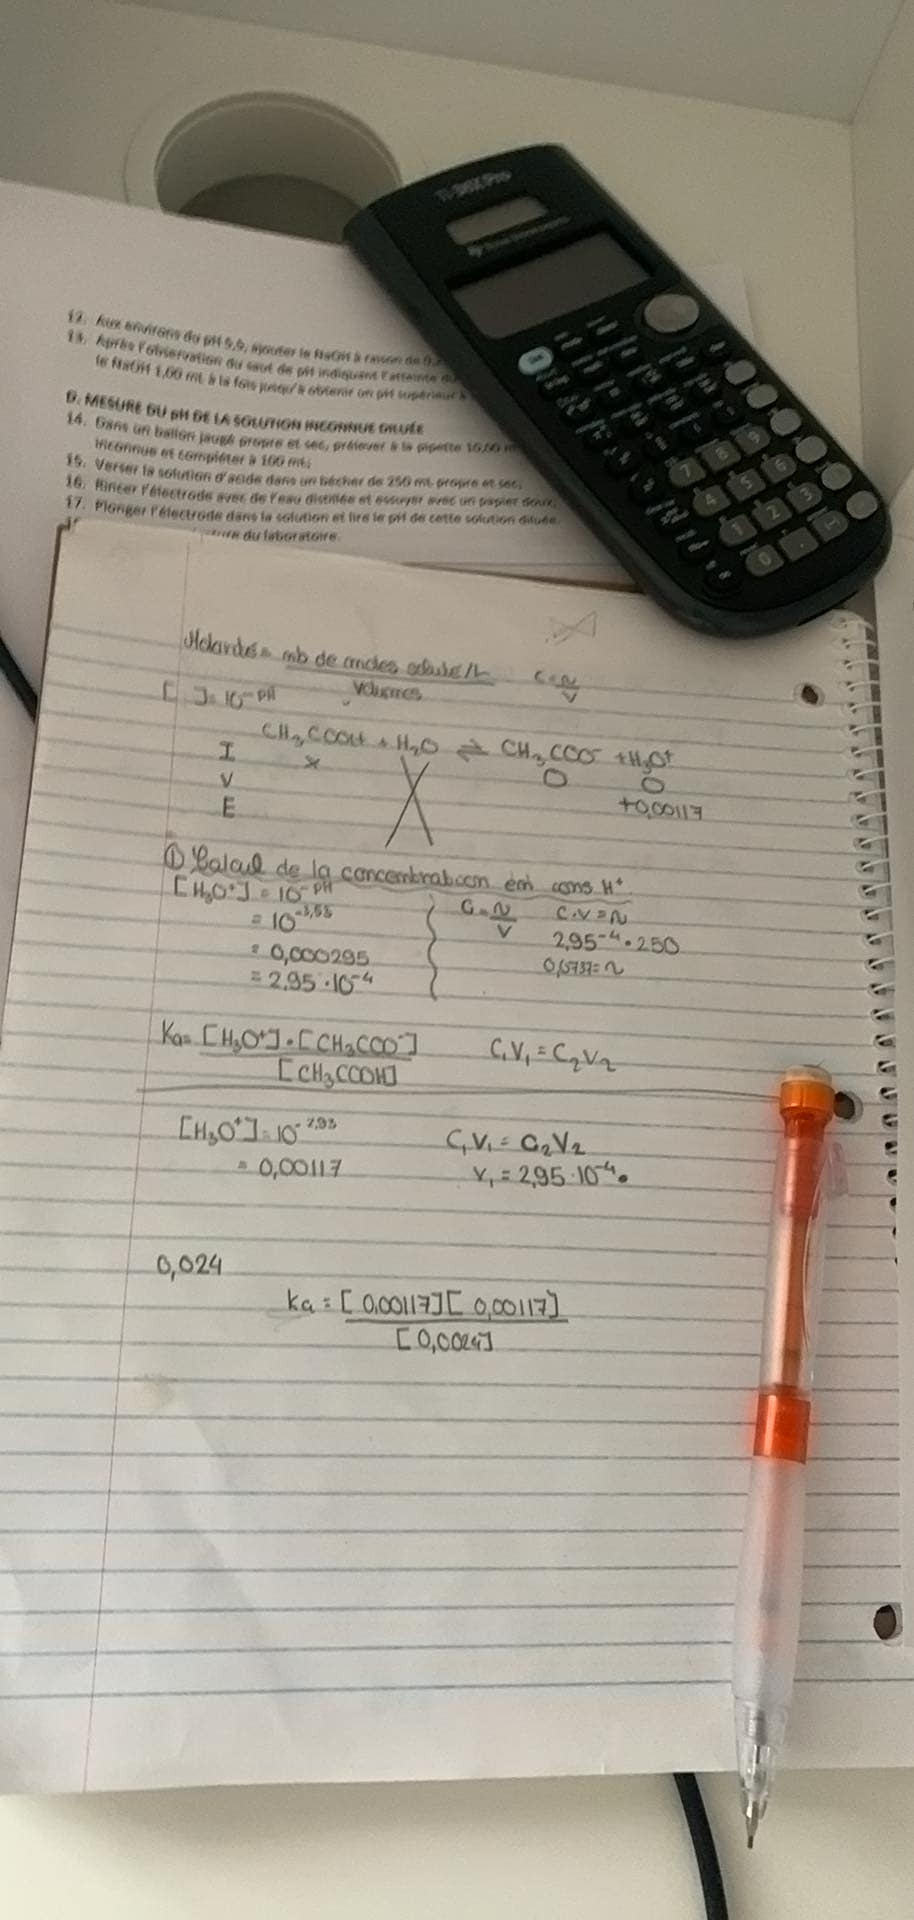 TI-36X Pro
Texas Instruments
12. Aux environs du pH 5,5, ajouter le NaOH à raison de 0,
13. Après l'observation du saut de pH indiquant l'atteinte du
le NaOH 1,00 mL à la fois jusqu'à obtenir un pH supérieur à
D. MESURE DU pH DE LA SOLUTION INCONNUE DILUÉE
14. Dans un ballon jaugé propre et sec, prélever à la pipette 10,00 m
inconnue et compléter à 100 mL;
15. Verser la solution d'acide dans un bécher de 250 mL propre et sec;
16. Rincer l'électrode avec de l'eau distillée et essuyer avec un papier doux;
17. Plonger l'électrode dans la solution et lire le pH de cette solution diluée.
du laboratoire.
7 8 9
4 5 6
1 2 3
0 .
nb de moles soluté/L C=n/V
Volumes
[ ]=10^-pH
CH3COOH + H2O ⇌ CH3COO- + H3O+
I x O O
V +0,00117
E
① Calcul de la concentration en ions H+
[H3O+] = 10^-pH
= 10^-3,53
= 0,000295
= 2,95 · 10^-4
C=n/V C.V=n
2,95^-4 · 250
Ka= [H3O+]·[CH3COO-]/[CH3COOH] C1V1 = C2V2
[H3O+]=10^-2,93 C1V1 = C2V2
= 0,00117 V1 = 2,95·10^-4•
0,024
Ka = [0,00117][0,00117]
[0,0024]